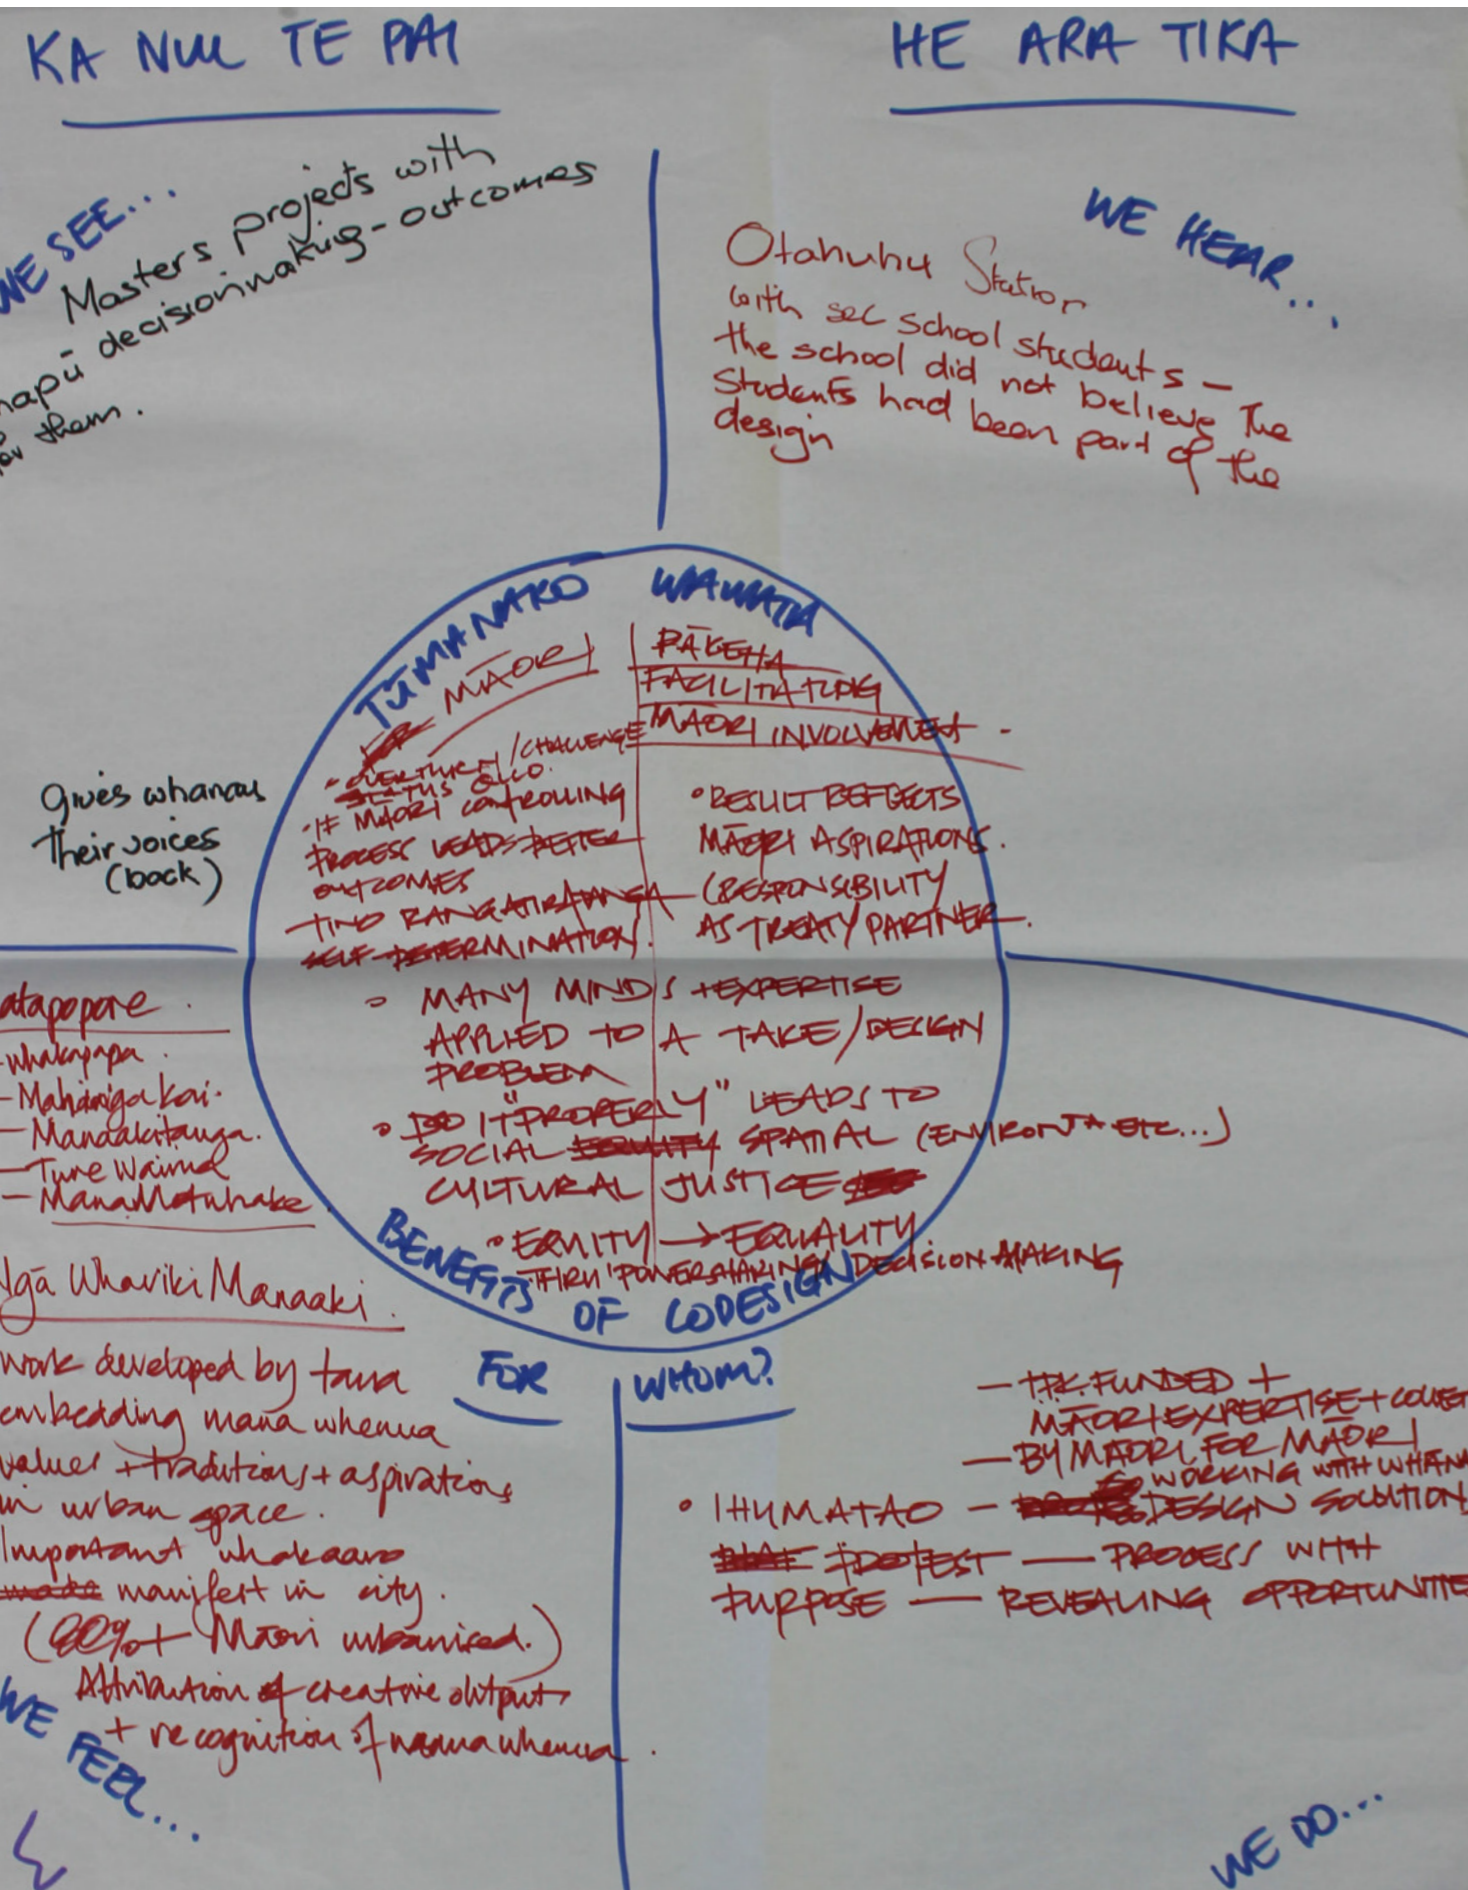 KA NUI TE PAI
HE ARA TIKA
WE SEE...
Masters projects with
hapū decisionmaking - outcomes
for them.
Gives whanau
their voices
(back)
WE HEAR...
Otahuhu Station
with sec school students -
the school did not believe the
students had been part of the
design
TŪMANAKO
WAWATA
MĀORI
- OVERTHROW/CHALLENGE
STATUS QUO.
- IF MĀORI CONTROLLING
PROCESS LEADS BETTER
OUTCOMES
- TINO RANGATIRATANGA
SELF-DETERMINATION.
PĀKEHA
FACILITATING
MĀORI INVOLVEMENT -
• RESULT REFLECTS
MĀORI ASPIRATIONS.
(RESPONSIBILITY
AS TREATY PARTNER.
• MANY MINDS + EXPERTISE
APPLIED TO A TAKE/DESIGN
PROBLEM
• DO IT "PROPERLY" LEADS TO
SOCIAL EQUITY SPATIAL (ENVIRONT + ETC...)
CULTURAL JUSTICE
• EQUITY → EQUALITY
THRU 'POWERSHARING' DECISION MAKING
BENEFITS OF CODESIGN
FOR WHOM?
atapopore.
- whakapapa.
- Mahinga kai.
- Manaakitanga.
- Ture Waimā
- Mana Motuhake
Ngā Whariki Manaaki.
work developed by taua
embedding mana whenua
values + traditions + aspirations
in urban space.
Important whakaaro
made manifest in city.
(80%+ Māori urbanised.)
Attribution of creative output
+ recognition of mana whenua.
WE FEEL...
- TPK FUNDED +
MĀORI EXPERTISE + COLLECT
- BY MĀORI, FOR MĀORI
WORKING WITH WHĀNA
• IHUMATAO - DESIGN SOLUTION
PROTEST — PROCESS WITH
PURPOSE — REVEALING OPPORTUNITIE
WE DO...